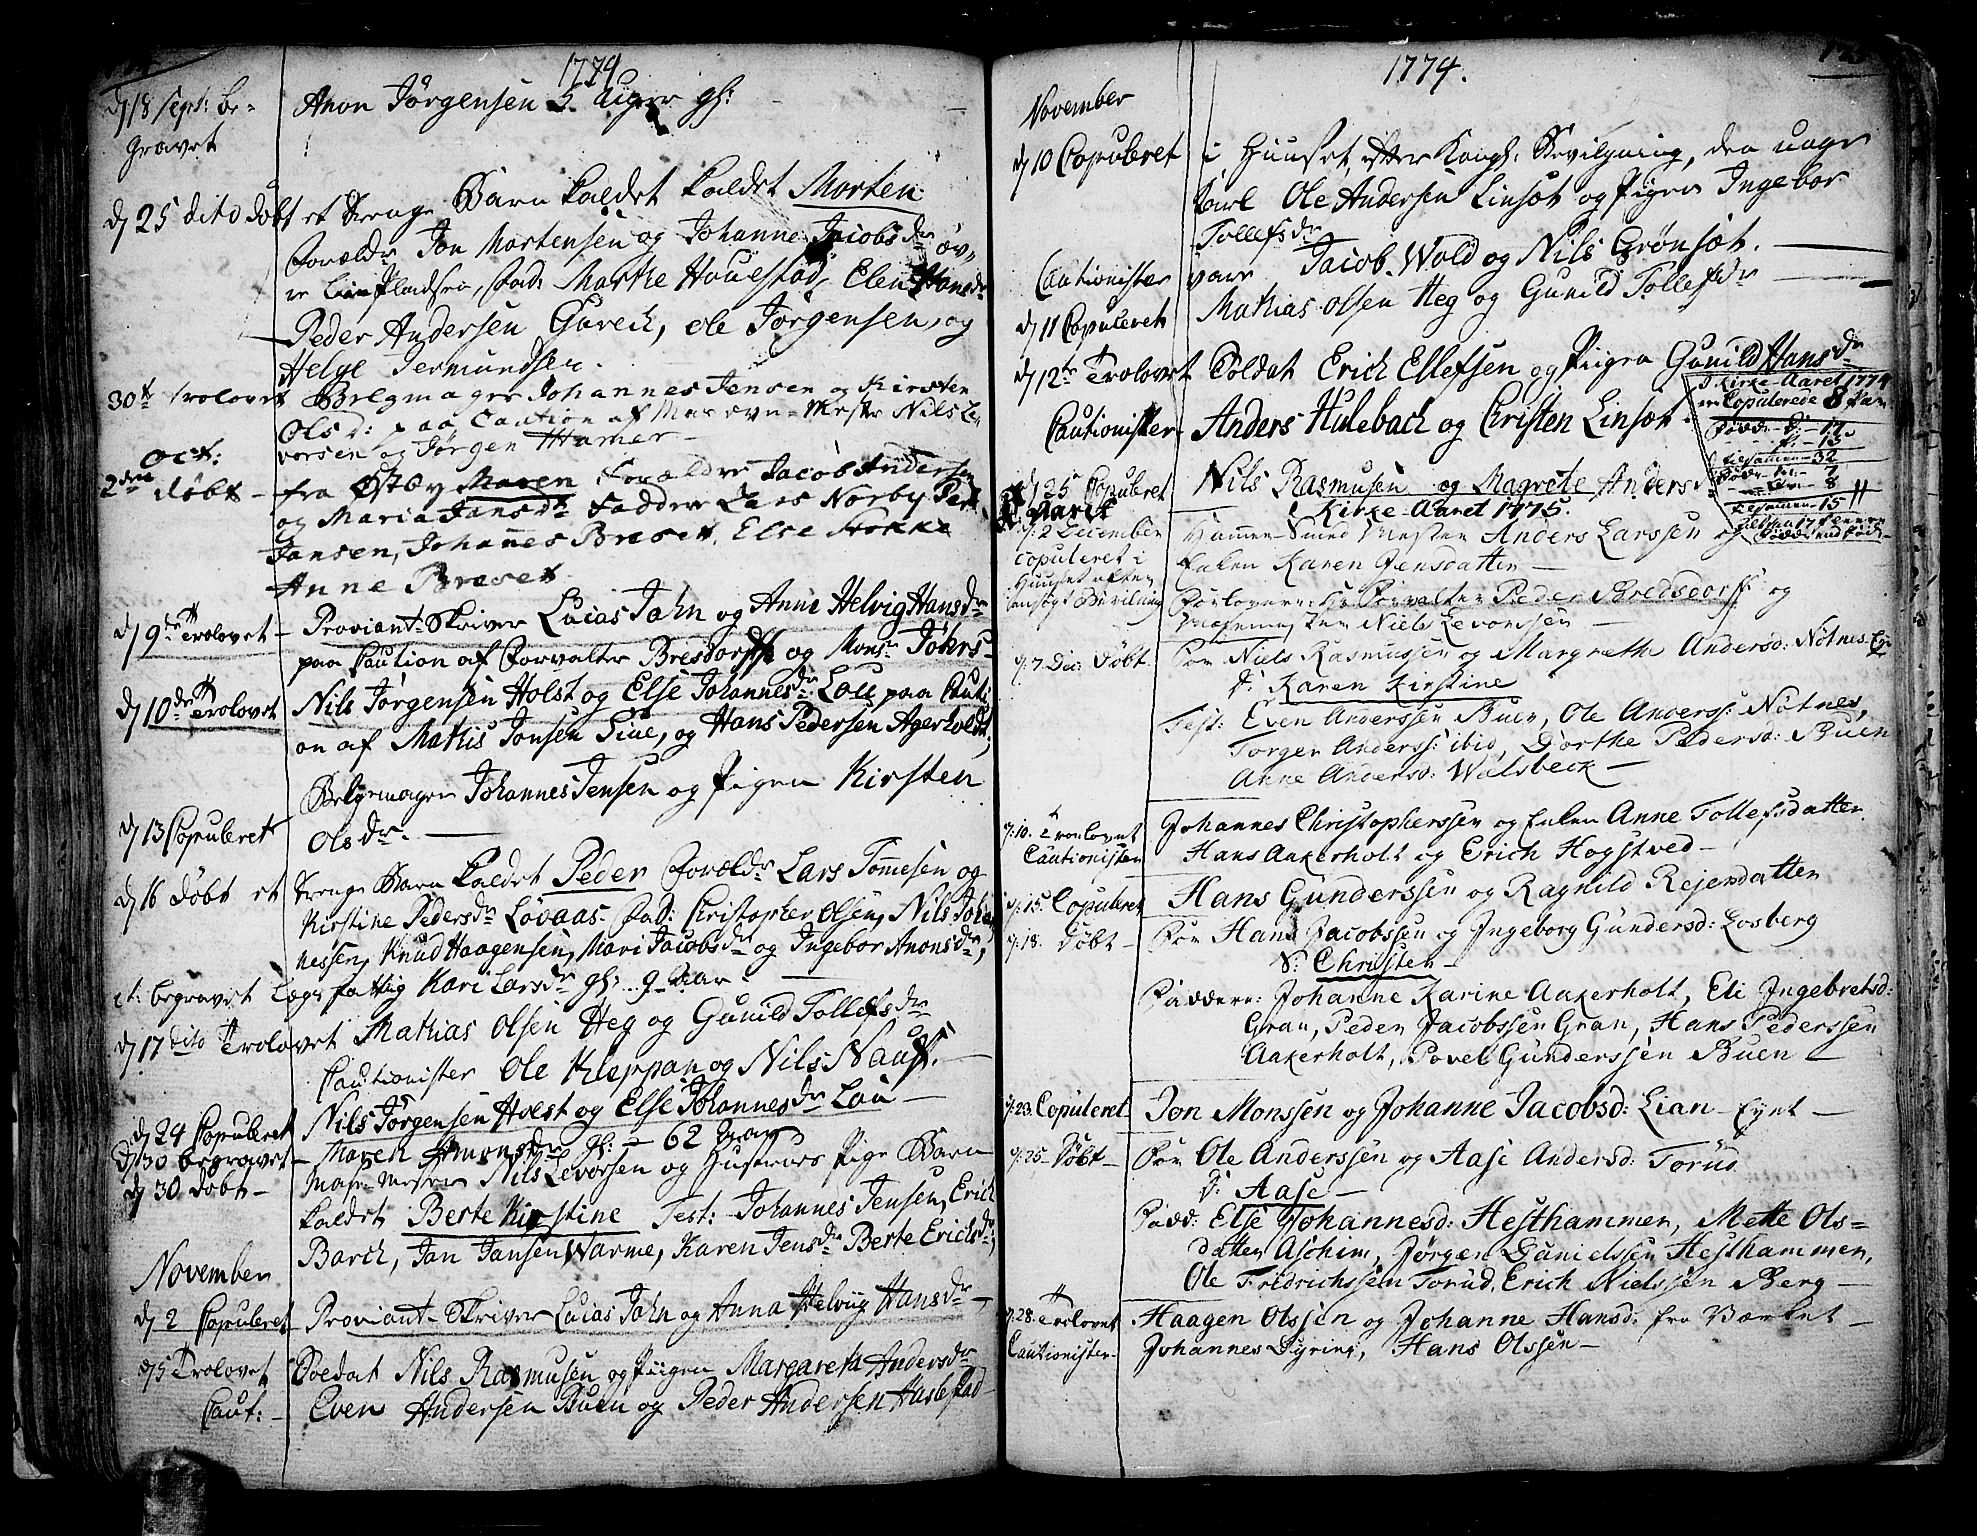 1774
d 18 Sept: be-
gravet
Anon Jörgensen 5 Uiger gl:
d 25 dito döbt et Drenge Barn kaldet kaldet Morten
Foræld: Jon Mortensen og Johanne Jacobsdr öv-
re Lie Pladsen, Fad: Marthe Houestad, Elen Hansdr
Peder Andersen Gureck, Ole Jörgensen, og
Helge Termundsen.
30t trolovet Belgmager Johannes Jensen og Kirsten
Olsd: paa Caution af Masovn-Mester Nils Le-
vorsen og Jörgen Hamer
Oct:
2den döbt - fra Östby Maren Forældre Jacob Andersen
og Maria Jansdr Faddre Lars Norby Per
Jansen, Johannes Breset, Else Hokke
Anne Breset
d 9de Trolovet - Proviant-Skriver Lucas Jahn og Anne Helvig Hansdr
paa Caution af Forvalter Bresdorff og Monsr Töhrs-
d 10de Trolovet Nils Jörgensen Holst og Else Johannesdr Lou paa Cauti
on af Mathis Jonsen Siue, og Hans Pedersen Agerholdt,
d 13 Copuleret Belgemager Johannes Jensen og Pigen Kirsten
Olsdr.
d 16 Döbt et Drenge Barn kaldet Peder Foræld Lars Tommesen og
Kirstine Pedersdr Lövaas. Fad: Christopher Olsen, Nils Johan
nessen, Knud Haagensen, Mari Jacobsdr og Ingebor Anonsdr,
it: begravet Legs fattig Kari Larsdr gl: 9 Aar
d 17 dito Trolovet Mathias Olsen Heg og Gunild Tollefsdr
Cautionister Ole Kleppan og Nils Nauf.
d 24 Copuleret Nils Jörgensen Holst og Else Johannesdr Lou
d 30 begravet - Maren Amonsdr gl: 62 Aar
d 30 döbt - Masr Mester Nils Levorsen og Hustrues Pige Barn
kaldet Berte Kirstine Test: Johannes Jensen, Erich
Barch, Jan Jansen Warme, Karen Jensdr Berte Erichsdr,
November
d 2 Copuleret Proviant-Skriver Lucas Jahn og Anna Helviig Hansdr
d 5 Trolovet Soldat Nils Rasmusen og Piigen Margareta Andersdr
Caut: - Even Andersen Buen og Peder Andersen Haslestad
1774.
November
d 10 Copuleret i Huuset, efter Kongl: Bevilgning, den unge
Karl Ole Andersen Linsöt og Pigen Ingebor
Tollefsdr
Cautionister vare Jacob Wold og Nils Grönsöt.
d 11 Copuleret Mathias Olsen Heg og Gunild Tollefsdr
d 12te Trolovet Soldat Erich Ellefsen og Piigen Gunild Hansdr
Cautionister Anders Hulebach og Christen Linsöt
I Kirke-Aaret 1774
er Copulerede 8 Par
tilsammen - 32
tilsammen - 15
d 25 Copuleret Nils Rasmusen og Magrete Anders
Kirke-Aaret 1775.
d: 2 December Hammer-Smed Mester Anders Larssen og
Copuleret i Enken Karen Jensdatter
Huuset efter
ansögt Bevilning Forlovere: Hr Forvalter Peder Bredsdorff og
Masemester Niels Levorssen
d: 7 Dec: Döbt. For Niels Rasmussen og Margrethe Andersd: Nötnes-Ey
D: Karen Kirstine
Test: Even Anderssen Buen, Ole Anderss: Nötnes,
Torger Anderss: ibid, Dorthe Pedersd: Buen
Anne Andersd: Walsbeck
d: 10. Trolovet Johannes Christopherssen og Enken Anne Tollefsdatter
Cautionister Hans Aakerholt og Erich Hogstved
d: 15. Copuleret Hans Gunderssen og Ragnild Rejersdatter
d: 18. Döbt - For Hans Jacobssen og Ingeborg Gundersd: Losberg
S: Christen
Faddere: Johanne Karine Aakerholt, Eli Ingebretsd:
Gran, Peder Jacobssen Gran, Hans Pederssen
Aakerholt, Povel Gunderssen Buen
d: 23. Copuleret Jon Monssen og Johanne Jacobsd: Lian-Eyet
d: 25 - Döbt - For Ole Anderssen og Aase Andersd: Torud
D: Aase
Fadd: Else Johannesd: Hesthammer, Mette Ols-
datter Aschim, Jörgen Danielssen Hesthammer,
Ole Fredrichssen Torud, Erich Nielssen Berg
d: 28. Trolovet Haagen Olssen og Johanne Hansd: fra Værket
Cautionister Johannes Dyring, Hans Olssen